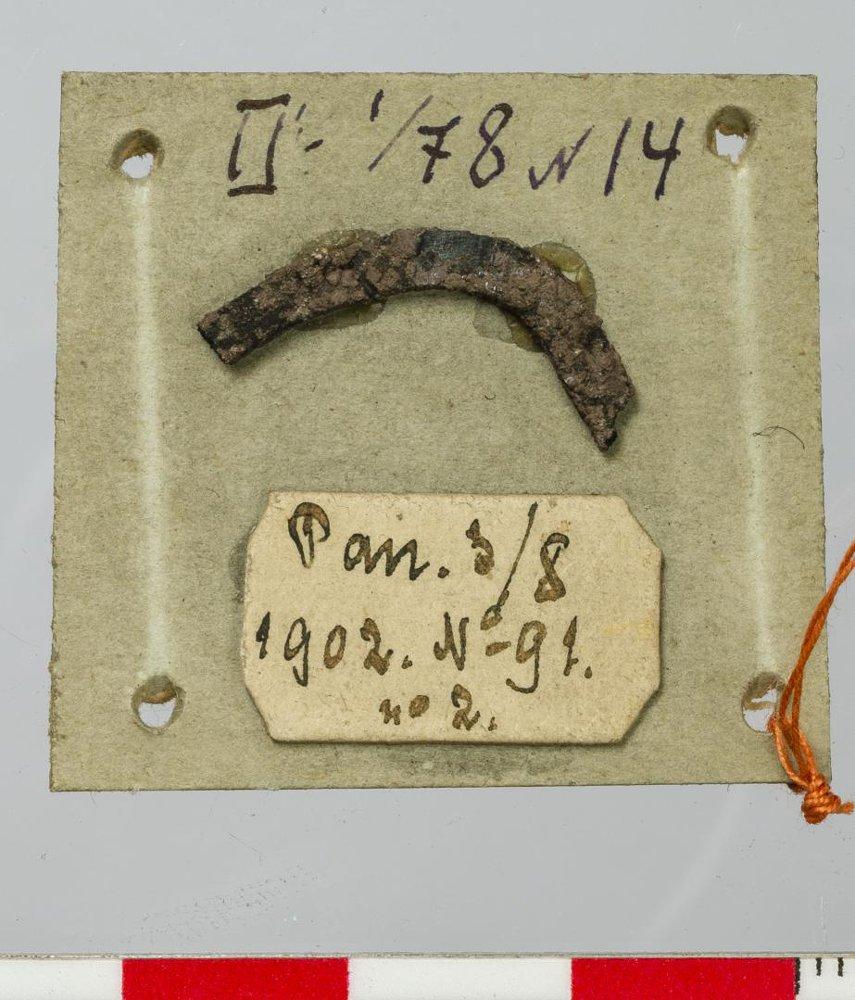 II - 1/78 N 14
Pan. 3/8
1902. Nº-91.
no 2.